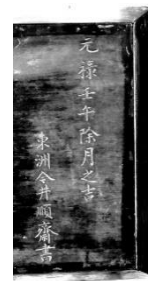 元禄壬午除月之吉
東洲今井順齋書